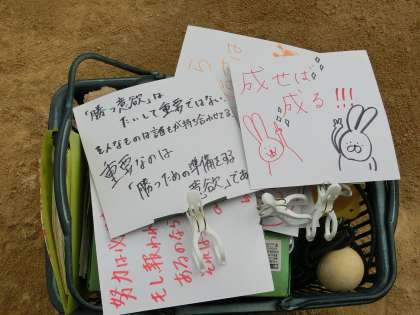 「勝つ意欲」は
たいして重要ではない。
そんなものは誰もが持ち合わせてる。
重要なのは
「勝つための準備をする
意欲」であ
成せば
成る!!!
努力は必
もし報われ
あるのなら
それは